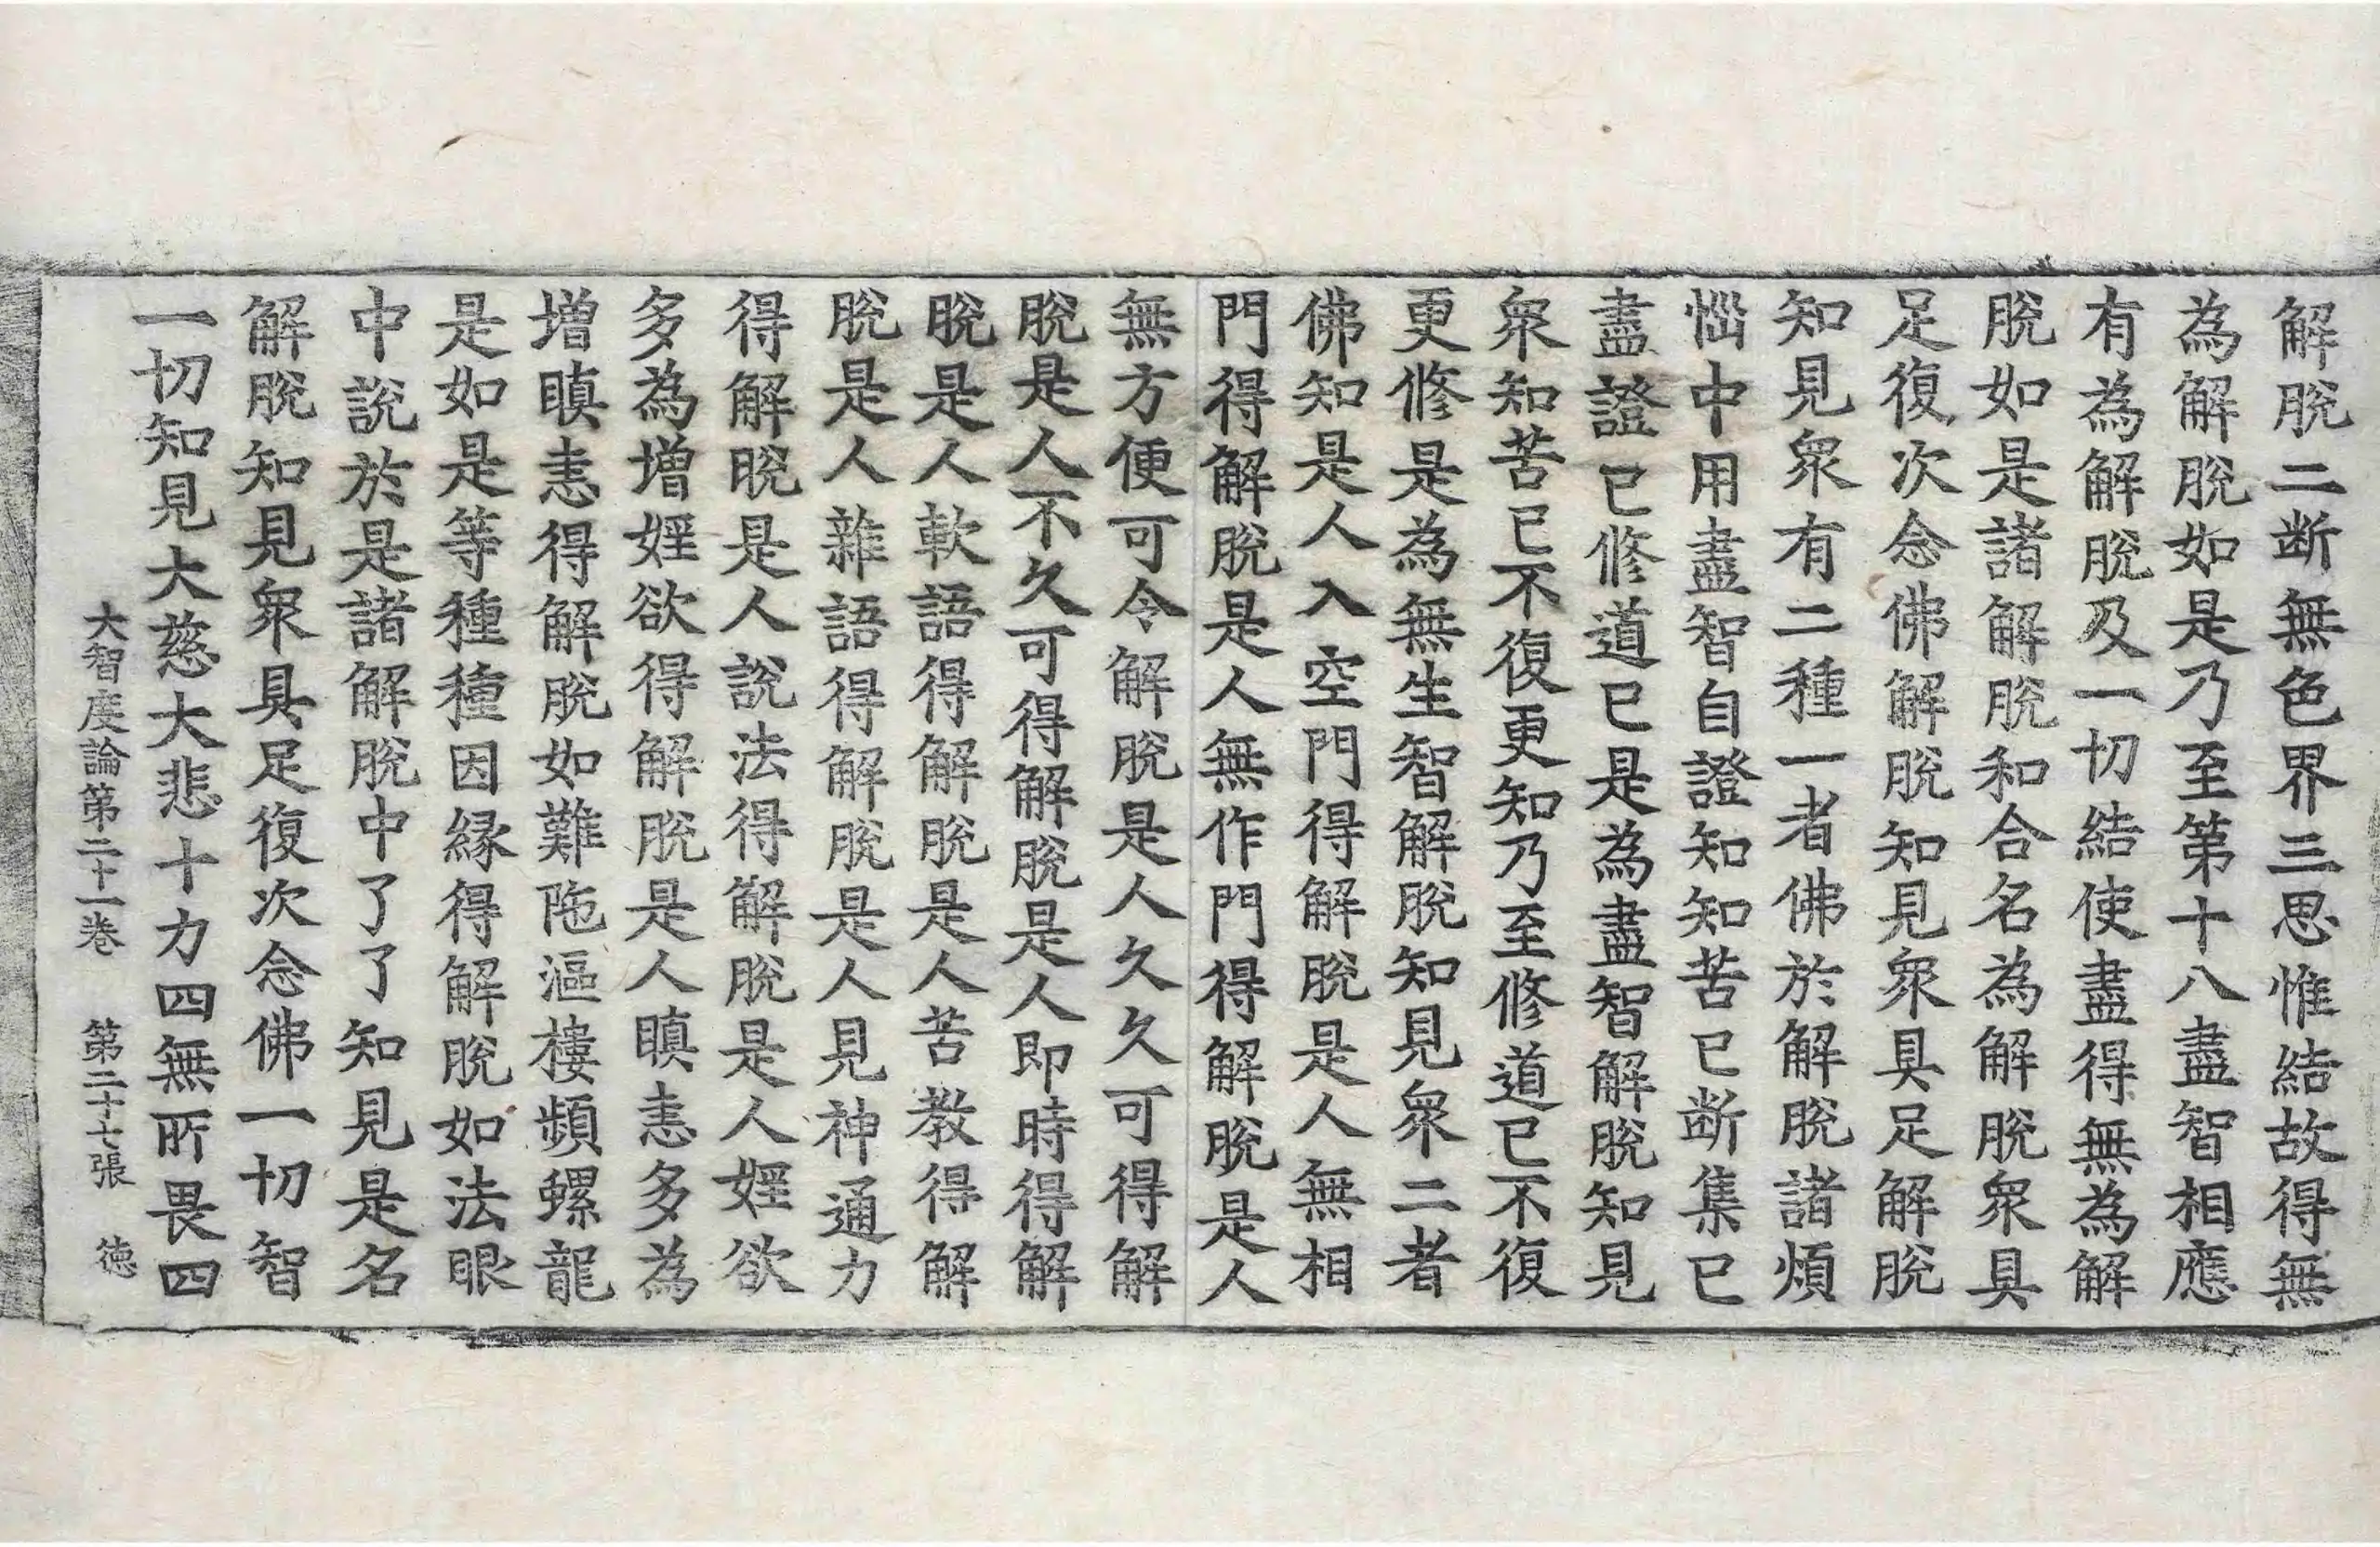 解脫二断無色界三思惟結故得無
為解脫如是乃至第十八盡智相應
有為解脫及一切結使盡得無為解
脫如是諸解脫和合名為解脫衆具
足復次念佛解脫知見衆具足解脫
知見衆有二種一者佛於解脫諸煩
惱中用盡智自證知知苦已断集已
盡證已修道已是為盡智解脫知見
衆知苦已不復更知乃至修道已不復
更修是為無生智解脫知見衆二者
佛知是人入空門得解脫是人無相
門得解脫是人無作門得解脫是人
無方便可令解脫是人久久可得解
脫是人不久可得解脫是人即時得解
脫是人軟語得解脫是人苦教得解
脫是人雜語得解脫是人見神通力
得解脫是人說法得解脫是人婬欲
多為增婬欲得解脫是人瞋恚多為
增瞋恚得解脫如難陁漚樓頻螺龍
是如是等種種因緣得解脫如法眼
中說於是諸解脫中了了知見是名
解脫知見衆具足復次念佛一切智
一切知見大慈大悲十力四無所畏四
大智度論第二十一卷　第二十七張　德